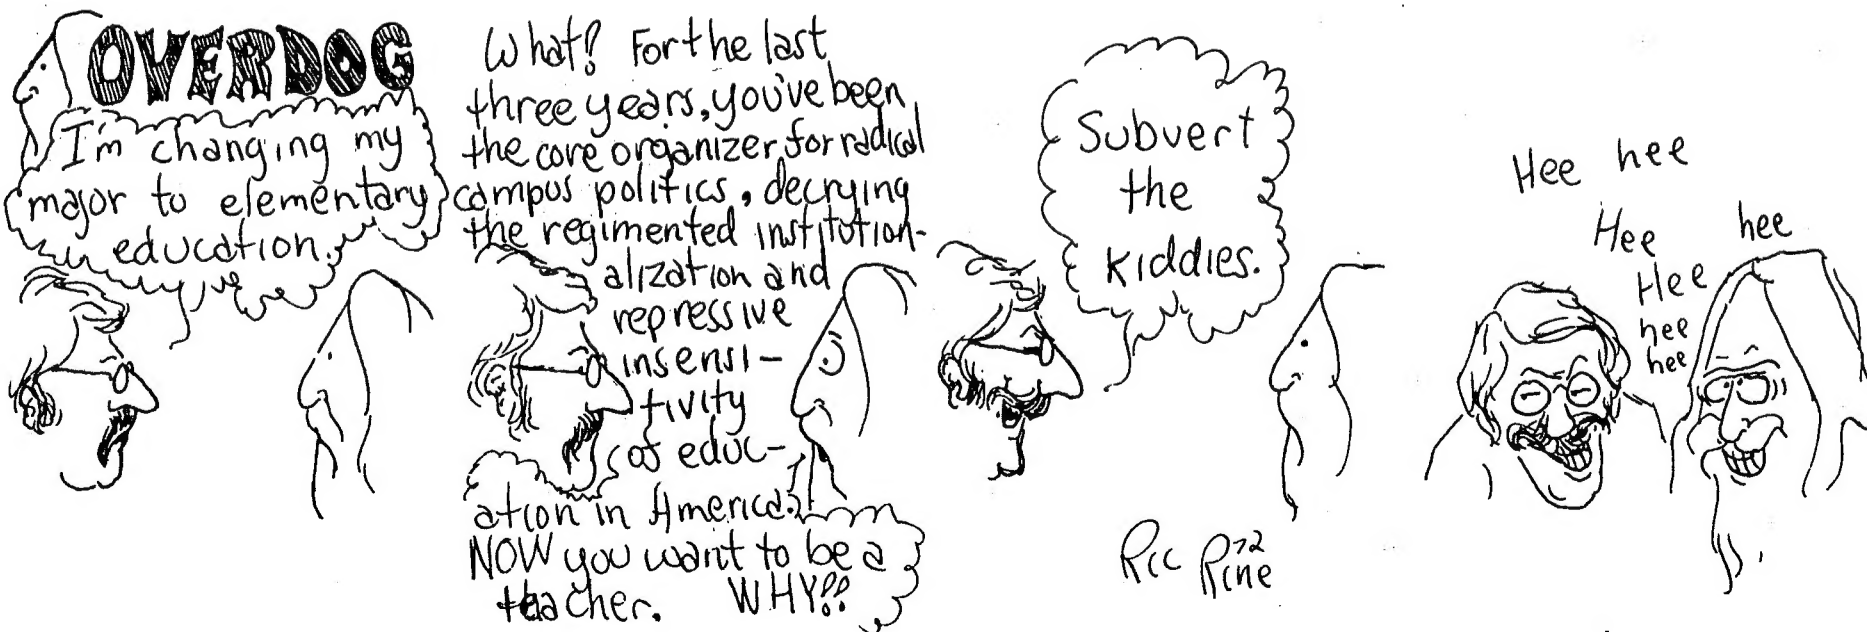 OVERDOG
I'm changing my
major to elementary
education.
What? For the last
three years, you've been
the core organizer for radical
campus politics, decrying
the regimented institution-
alization and
repressive
insensi-
tivity
of educ-
ation in America.
NOW you want to be a
teacher. WHY?!
Subvert
the
kiddies.
Hee hee
Hee hee
Hee
hee
hee
Ric Rine
72